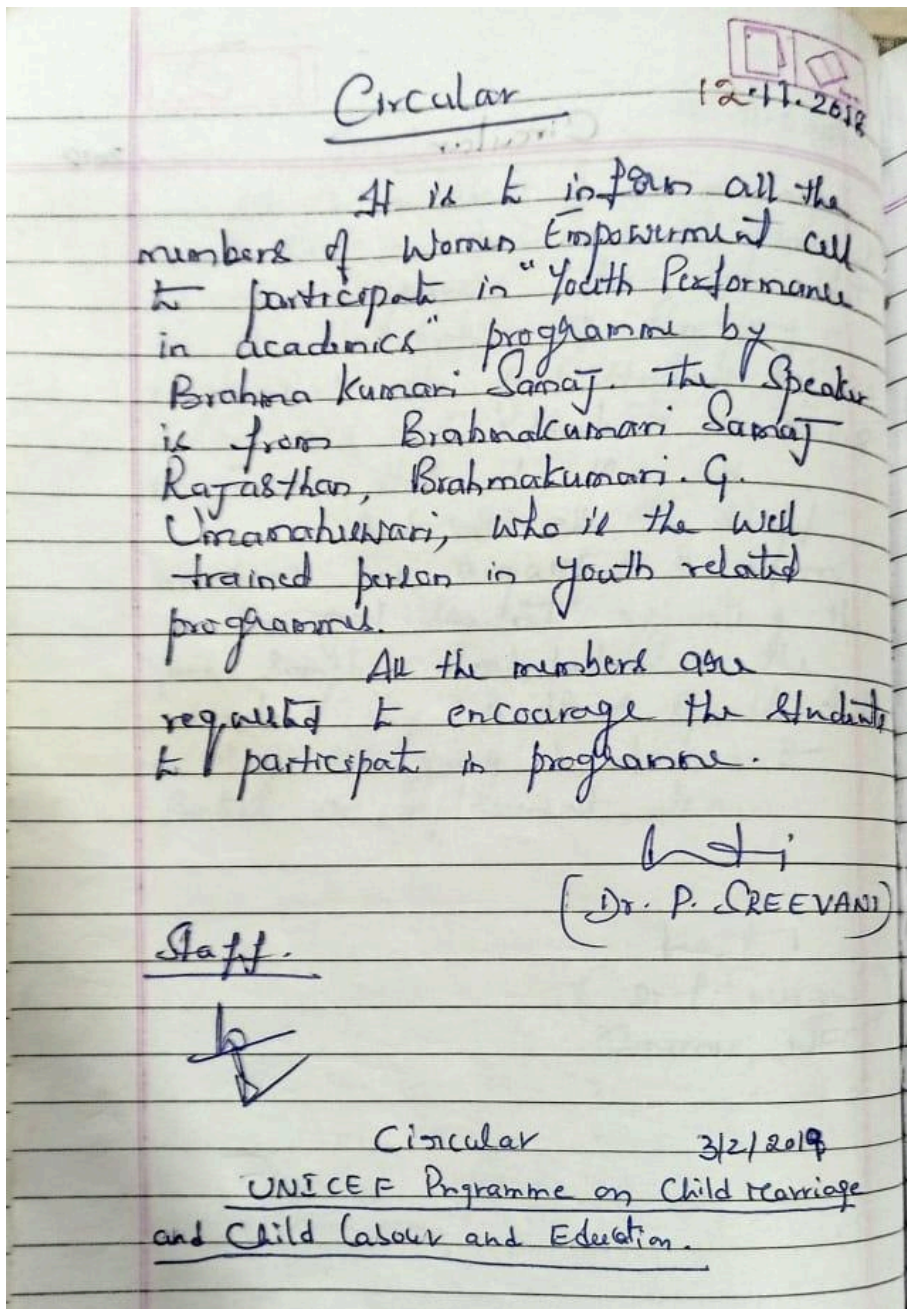 Circular
12.11.2018
It is to inform all the
members of Women Empowerment cell
to participate in "Youth Performance
in academics" programme by
Brahma Kumari Samaj. The Speaker
is from Brahmakumari Samaj
Rajasthan, Brahmakumari. G.
Umamaheswari, who is the well
trained person in youth related
programmes.
All the members are
requested to encourage the students
to participate in programme.
(Dr. P. SREEVANI)
Staff.
Circular 3/2/2019
UNICEF Prgramme on Child Marriage
and Child Labour and Education.